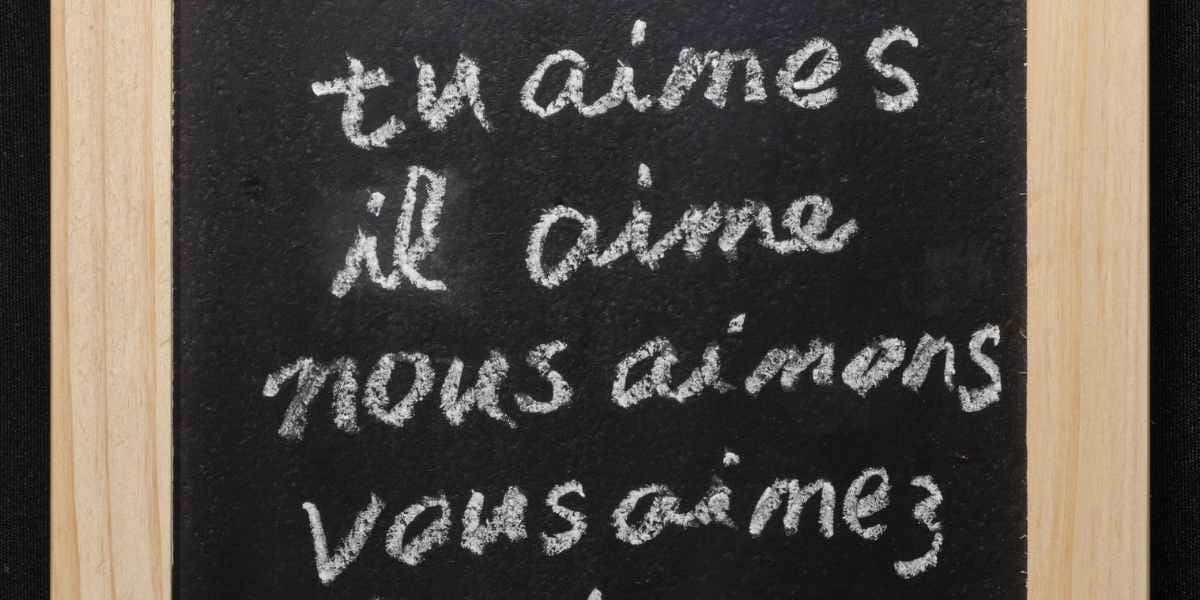 tu aimes
il aime
nous aimons
vous aimez